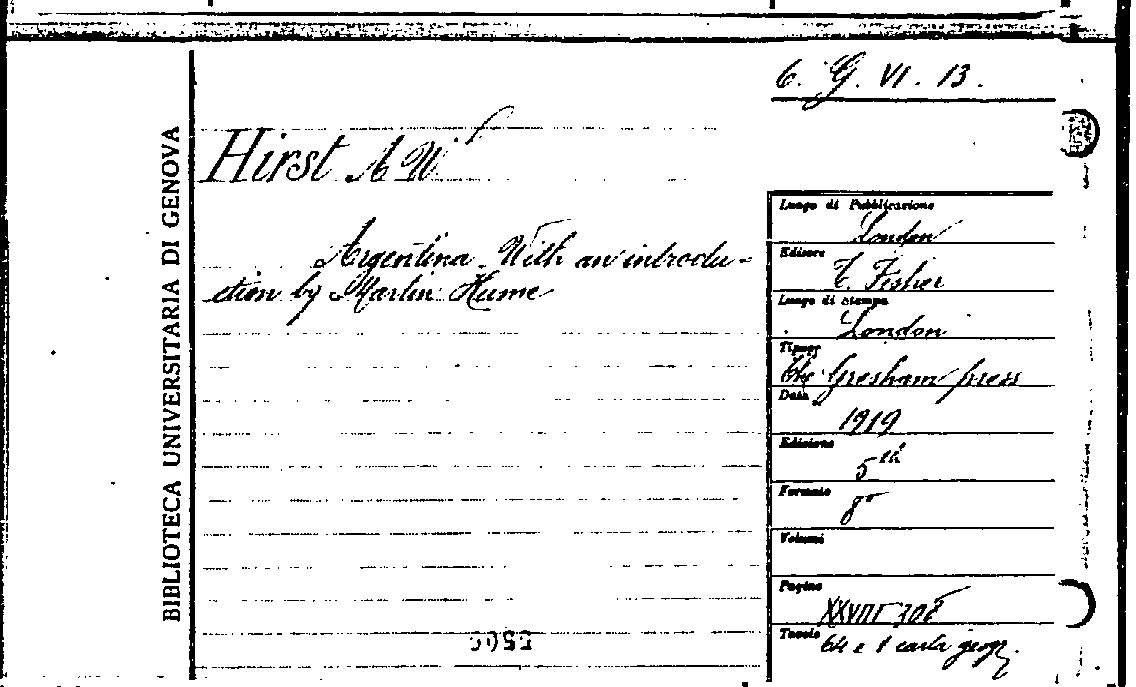 6. G. VI. 13.
BIBLIOTECA UNIVERSITARIA DI GENOVA
Hirst A W
Argentina. With an introdu-
ction by Martin Hume
Luogo di Pubblicazione
London
Editore
T. Fisher
Luogo di stampa
London
Tipogr.
The Gresham press
Data
1919
Edizione
5th
Formato
8°
Volumi
Pagine
XXVIII 308
Tavole
64 e 1 carta geogr.